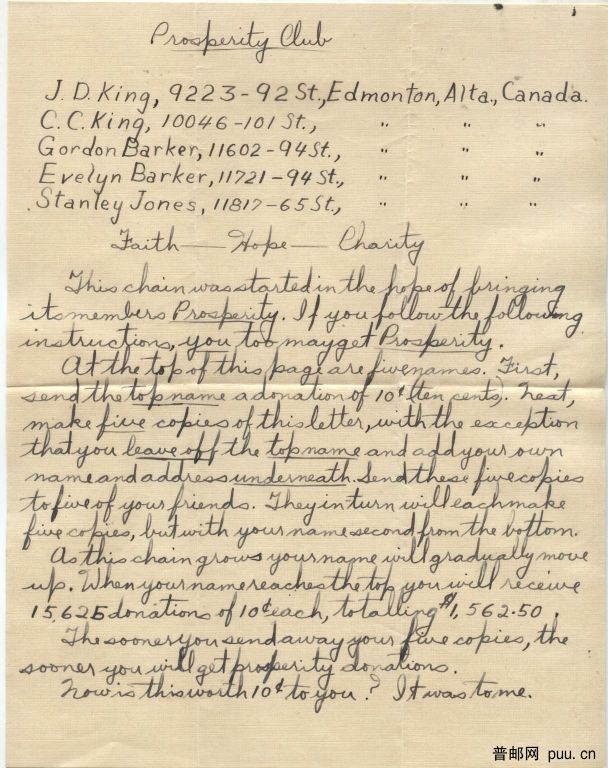 Prosperity Club
J. D. King, 9223-92 St., Edmonton, Alta., Canada.
C. C. King, 10046-101 St., " " "
Gordon Barker, 11602-94 St., " " "
Evelyn Barker, 11721-94 St., " " "
Stanley Jones, 11817-65 St., " " "
Faith — Hope — Charity
This chain was started in the hope of bringing
its members Prosperity. If you follow the following
instructions, you too may get Prosperity.
At the top of this page are five names. First,
send the top name a donation of 10¢ (ten cents). Next,
make five copies of this letter, with the exception
that you leave off the top name and add your own
name and address underneath. Send these five copies
to five of your friends. They in turn will each make
five copies, but with your name second from the bottom.
As this chain grows your name will gradually move
up. When your name reaches the top you will receive
15,625 donations of 10¢ each, totalling $1,562.50.
The sooner you send away your five copies, the
sooner you will get prosperity donations.
Now is this worth 10¢ to you? It was to me.
普邮网 puu.cn